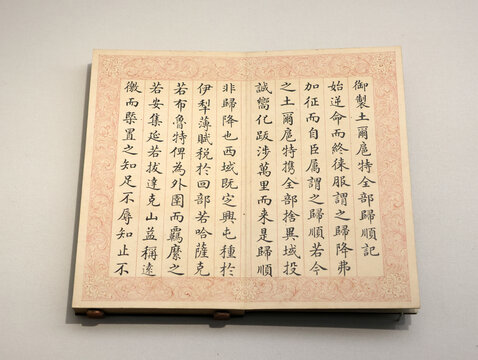 御製土爾扈特全部歸順記
始逆命而終徠服謂之歸降弗
加征而自臣屬謂之歸順若今
之土爾扈特携全部捨異域投
誠嚮化跋涉萬里而來是歸順
非歸降也西域既定興屯種於
伊犁薄賦税於回部若哈薩克
若布魯特俾為外圉而羈縻之
若安集延若拔達克山益稱遠
徼而槩置之知足不辱知止不